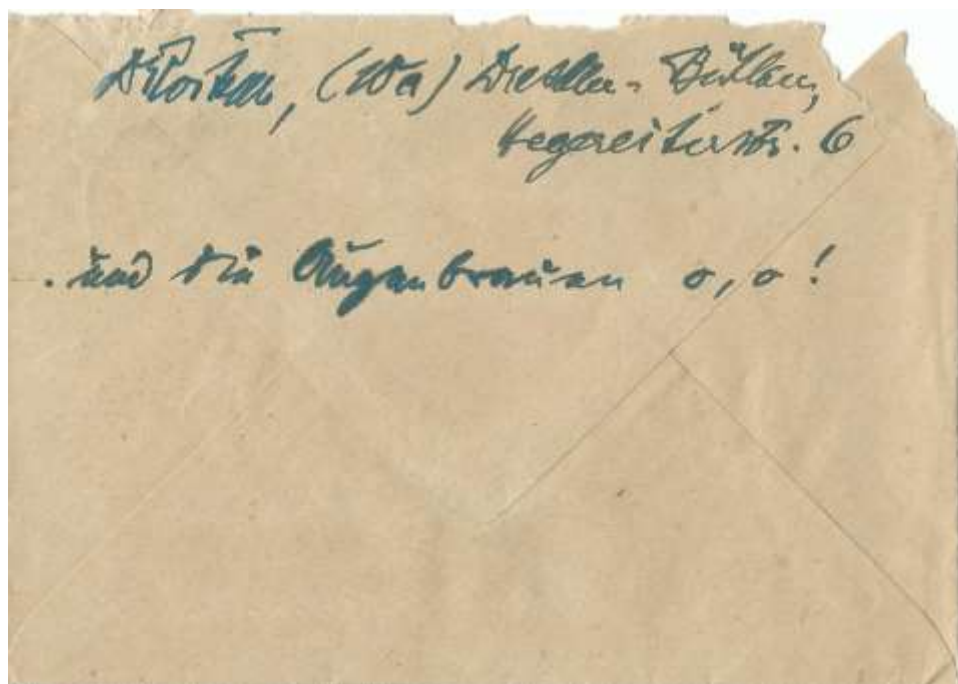 (10a) Dresden-Bühlau,
Hegereiterstr. 6
. und die Augenbrauen o, o!